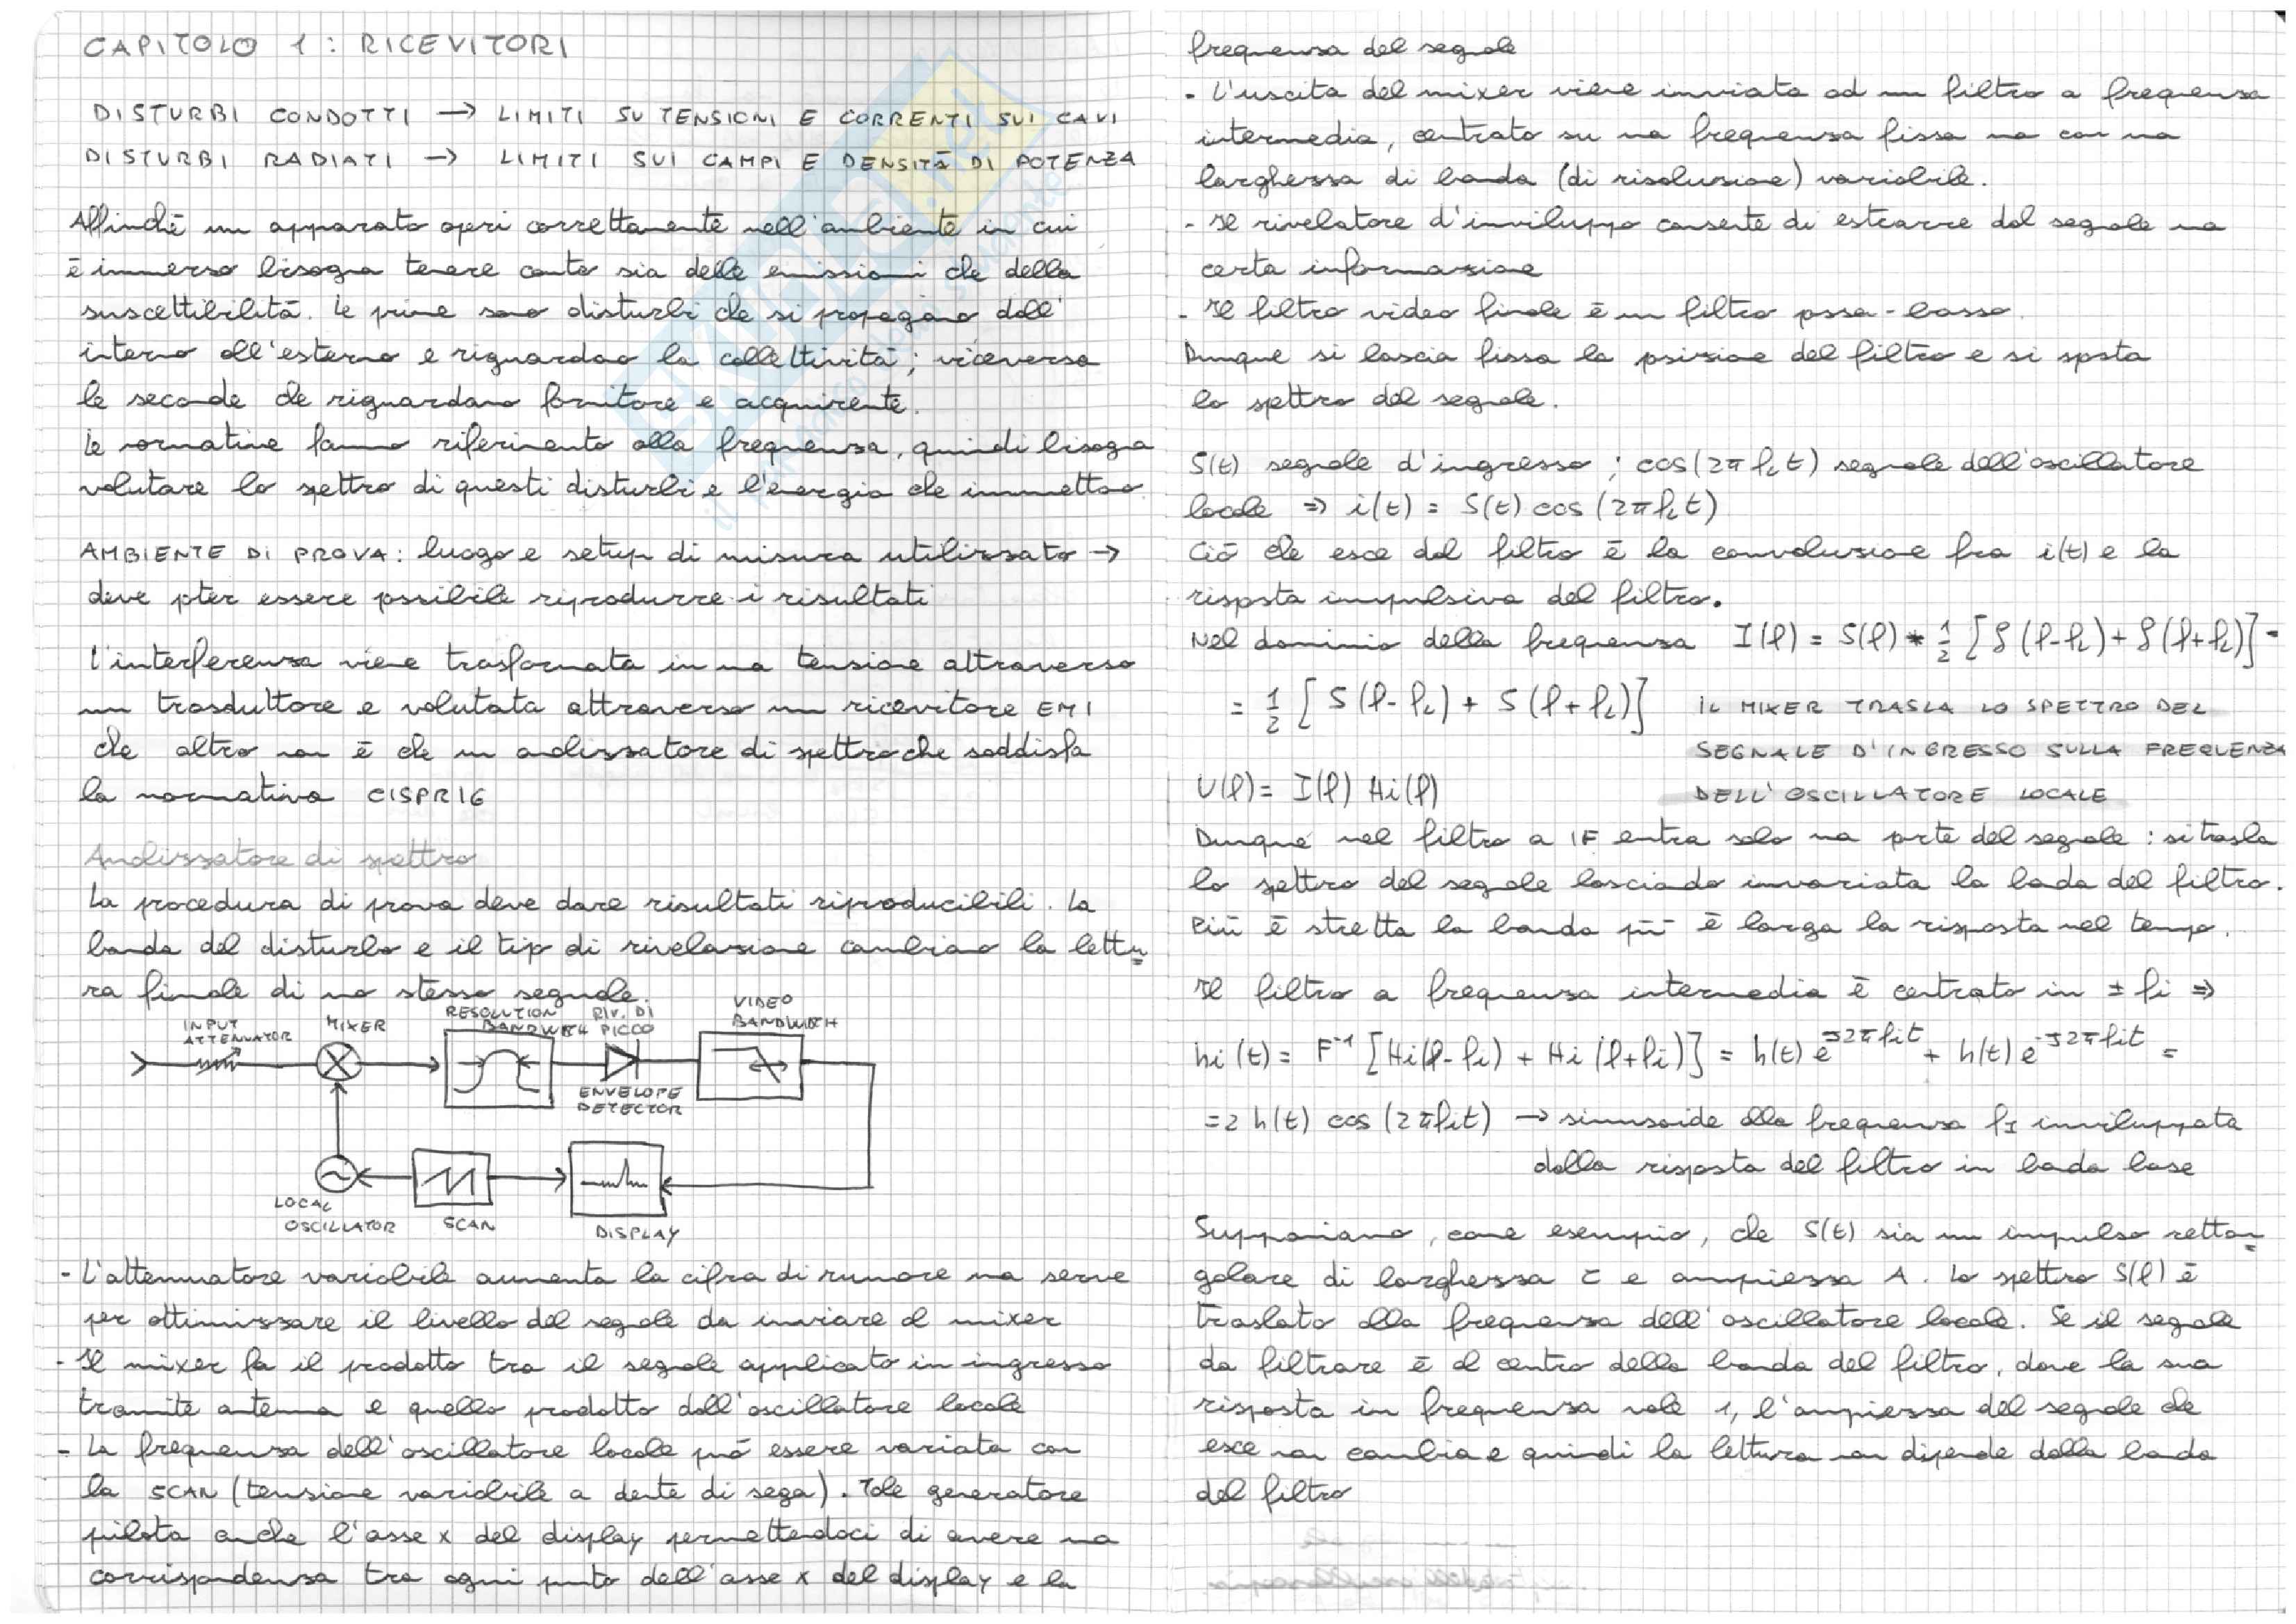 CAPITOLO 1 : RICEVITORI
DISTURBI CONDOTTI → LIMITI SU TENSIONI E CORRENTI SUI CAVI
DISTURBI RADIATI → LIMITI SUI CAMPI E DENSITÀ DI POTENZA
Affinchè un apparato operi correttamente nell'ambiente in cui
è immerso bisogna tenere conto sia delle emissioni che della
suscettibilità. Le prime sono disturbi che si propagano dall'
interno all'esterno e riguardano la collettività; viceversa
le seconde che riguardano fornitore e acquirente.
Le normative fanno riferimento alla frequenza, quindi bisogna
valutare lo spettro di questi disturbi e l'energia che immettono
AMBIENTE DI PROVA: luogo e setup di misura utilizzato →
deve poter essere possibile riprodurre i risultati
L'interferenza viene trasformata in una tensione attraverso
un trasduttore e valutata attraverso un ricevitore EMI
che altro non è che un analizzatore di spettro che soddisfa
la normativa CISPR16
Analizzatore di spettro
La procedura di prova deve dare risultati riproducibili. La
banda del disturbo e il tipo di rivelazione cambiano la lettu
ra finale di uno stesso segnale.
INPUT ATTENUATOR
MIXER
RESOLUTION BANDWITH
RIV. DI PICCO
VIDEO BANDWITH
ENVELOPE DETECTOR
LOCAL OSCILLATOR
SCAN
DISPLAY
- L'attenuatore variabile aumenta la cifra di rumore ma serve
per ottimizzare il livello del segnale da inviare al mixer
- Il mixer fa il prodotto tra il segnale applicato in ingresso
tramite antenna e quello prodotto dall'oscillatore locale
- La frequenza dell'oscillatore locale può essere variata con
la SCAN (tensione variabile a dente di sega). Tale generatore
pilota anche l'asse x del display permettendoci di avere una
corrispondenza tra ogni punto dell'asse x del display e la
frequenza del segnale
- L'uscita del mixer viene inviata ad un filtro a frequenza
intermedia, centrato su una frequenza fissa ma con una
larghezza di banda (di risoluzione) variabile.
- Il rivelatore d'inviluppo consente di estrarre dal segnale una
certa informazione
- Il filtro video finale è un filtro passa-basso.
Dunque si lascia fissa la posizione del filtro e si sposta
lo spettro del segnale.
S(t) segnale d'ingresso ; cos(2π f_L t) segnale dell'oscillatore
locale ⇒ i(t) = S(t) cos (2π f_L t)
Ciò che esce dal filtro è la convoluzione fra i(t) e la
risposta impulsiva del filtro.
Nel dominio della frequenza I(f) = S(f) * 1/2 [δ(f-f_L) + δ(f+f_L)] =
= 1/2 [S(f-f_L) + S(f+f_L)] IL MIXER TRASLA LO SPETTRO DEL
SEGNALE D'INGRESSO SULLA FREQUENZA
U(f) = I(f) Hi(f) DELL'OSCILLATORE LOCALE
Dunque nel filtro a IF entra solo una parte del segnale : si trasla
lo spettro del segnale lasciando invariata la banda del filtro.
Più è stretta la banda più è larga la risposta nel tempo.
Il filtro a frequenza intermedia è centrato in ± fi ⇒
hi(t) = F⁻¹ [Hi(f-fi) + Hi(f+fi)] = h(t) e^{J2πfit} + h(t) e^{-J2πfit} =
= 2 h(t) cos (2πfit) → sinusoide alla frequenza f_I inviluppata
dalla risposta del filtro in banda base
Supponiamo, come esempio, che S(t) sia un impulso rettan
golare di larghezza τ e ampiezza A. Lo spettro S(f) è
traslato alla frequenza dell'oscillatore locale. Se il segnale
da filtrare è al centro della banda del filtro, dove la sua
risposta in frequenza vale 1, l'ampiezza del segnale che
esce non cambia e quindi la lettura non dipende dalla banda
del filtro